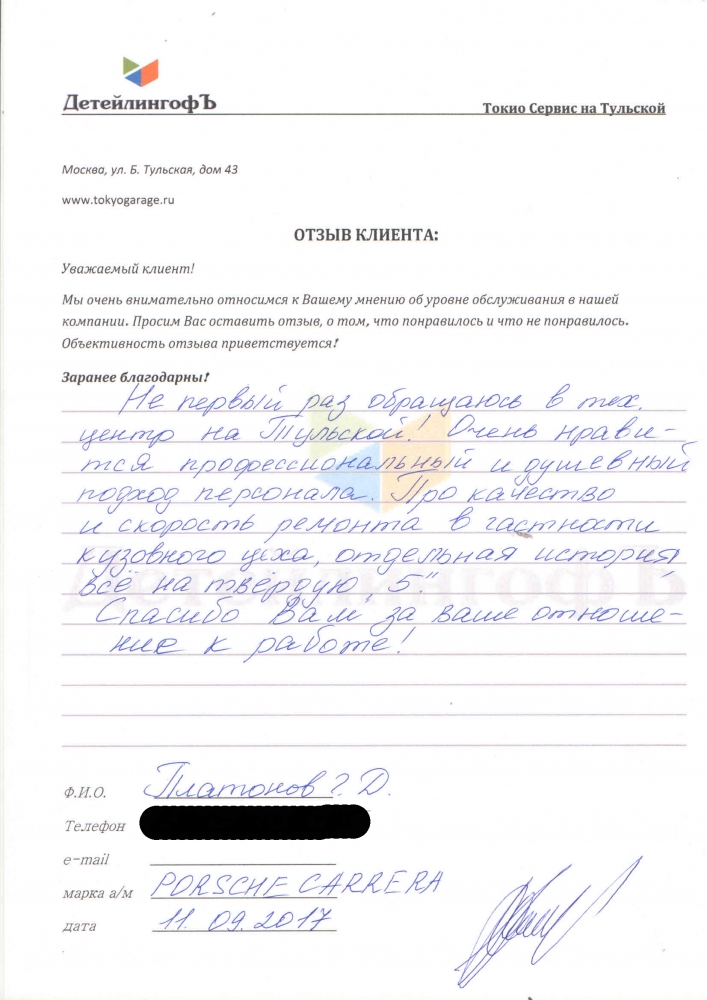 ДетейлингофЪ
Токио Сервис на Тульской
Москва, ул. Б. Тульская, дом 43
www.tokyogarage.ru
ОТЗЫВ КЛИЕНТА:
Уважаемый клиент!
Мы очень внимательно относимся к Вашему мнению об уровне обслуживания в нашей
компании. Просим Вас оставить отзыв, о том, что понравилось и что не понравилось.
Объективность отзыва приветствуется!
Заранее благодарны!
Не первый раз обращаюсь в тех.
центр на Тульской! Очень нрави-
тся профессиональный и душевный
подход персонала. Про качество
и скорость ремонта в частности
кузовного цеха, отдельная история,
всё на твёрдую „5".
Спасибо Вам за ваше отноше-
ние к работе!
Ф.И.О. Платонов Г. Д.
Телефон
e-mail
марка а/м PORSCHE CARRERA
дата 11. 09. 2017